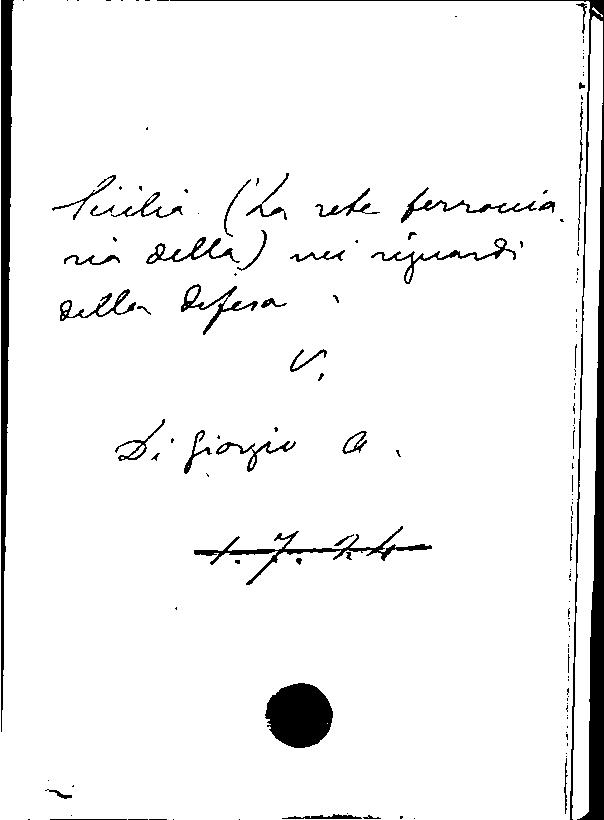 Sicilia (La rete ferrovia
ria della) nei riguardi
della difesa.
V.
Di Giorgio A.
1.7.24